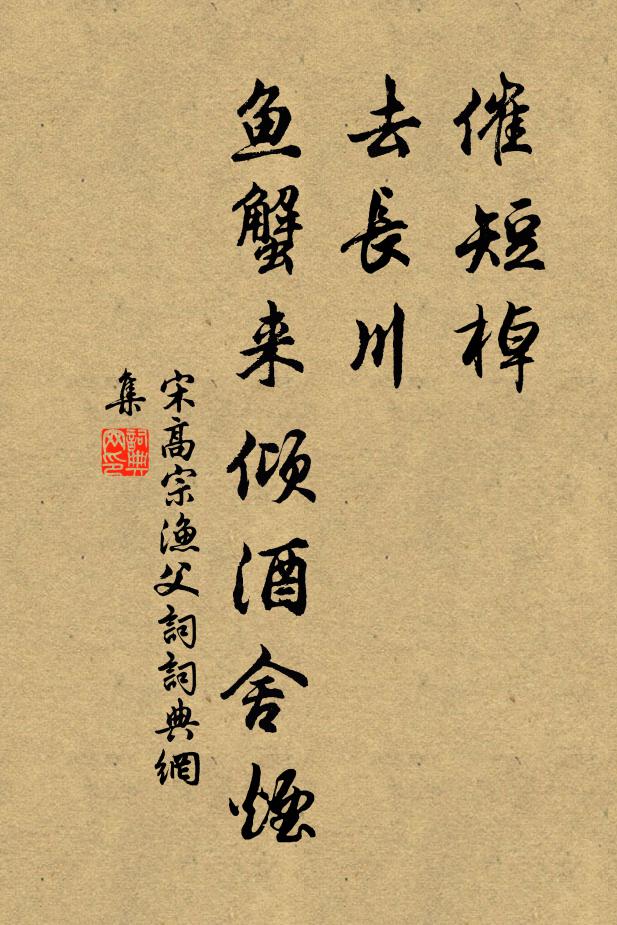 催短棹
去長川
鱼蟹来倾酒舍烟
宋高宗漁父詞詞典網
集
詞典
网印